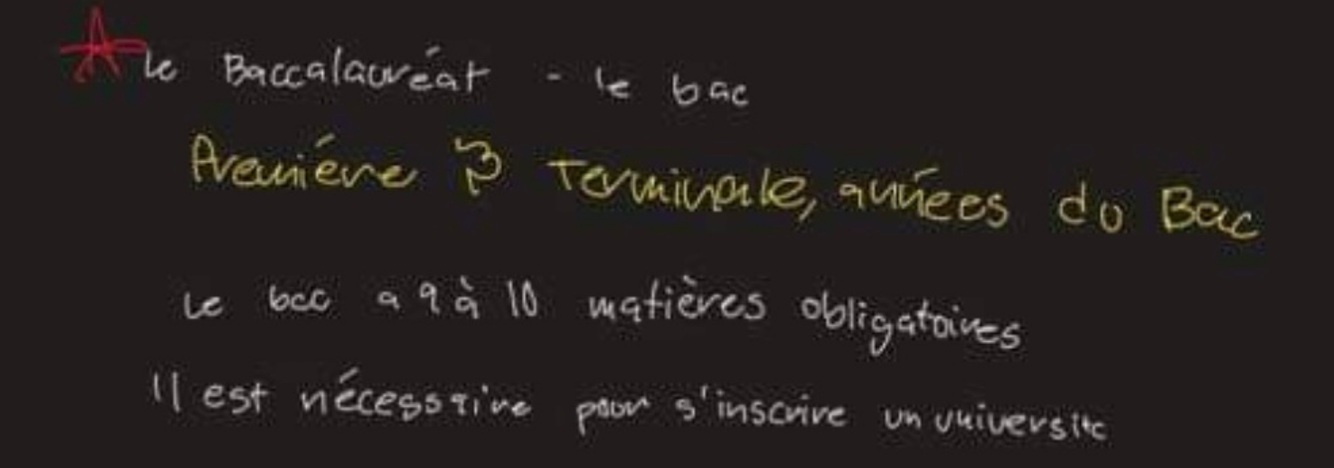 le Baccalauréat - le bac
Premiére & Terminale, années du Bac
Le bac a 9 à 10 matières obligatoires
Il est nécessaire pour s'inscrire un universite